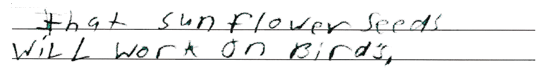 that sunflower seeds
Will work on Birds,